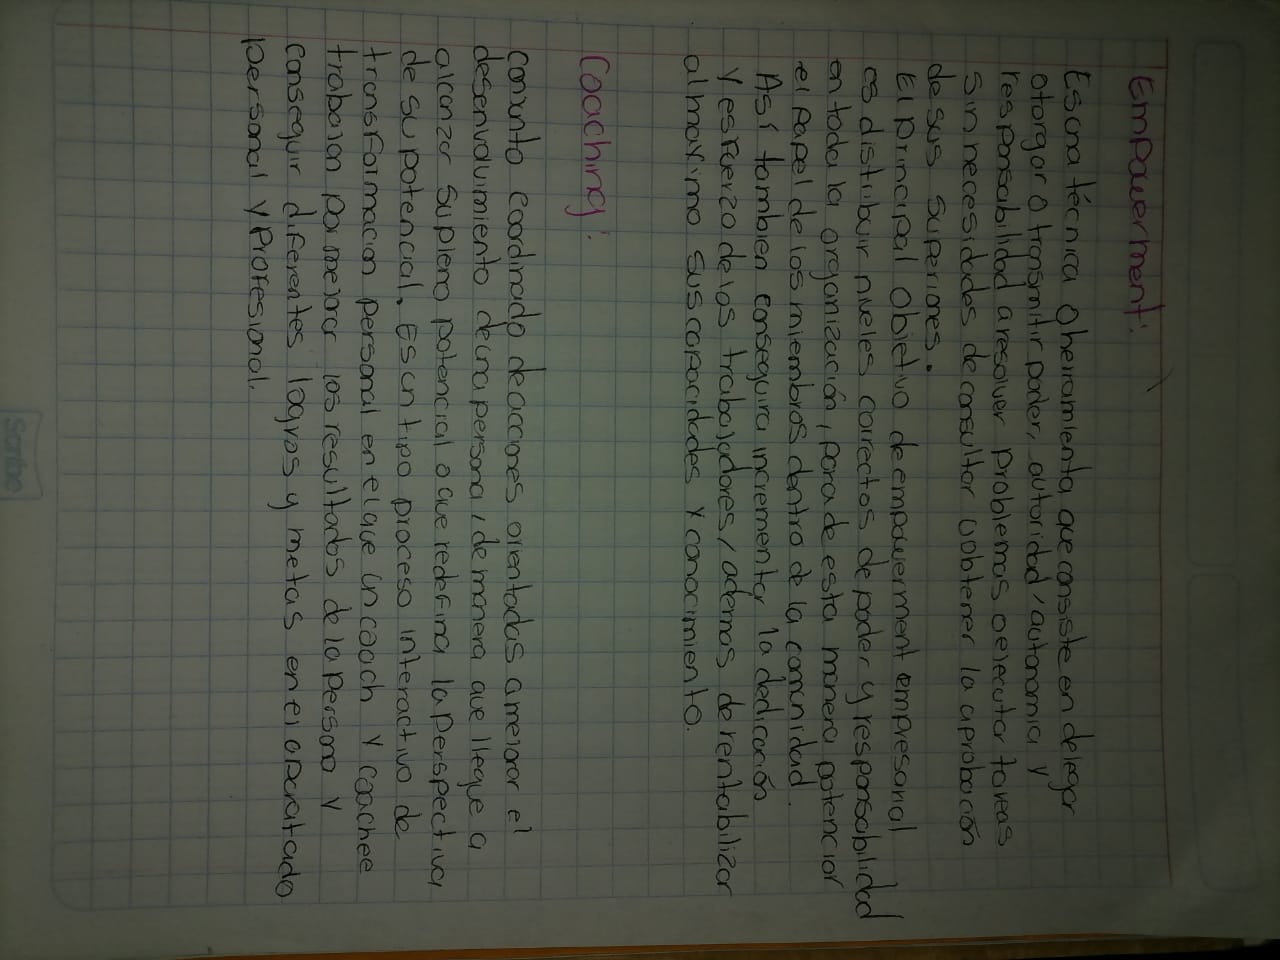 Empowerment:
Es una técnica o herramienta que consiste en delegar
otorgar o transmitir poder, autoridad, autonomia y
responsabilidad a resolver problemas o ejecutar tareas
sin necesidades de consultar u obtener la aprobación
de sus superiores.
El principal objetivo de empowerment empresarial
es distribuir niveles correctos de poder y responsabilidad
en toda la organización, para de esta manera potenciar
el papel de los miembros dentro de la comunidad.
Así tambien conseguira incrementar la dedicación
y esfuerzo de los trabajadores, ademas de rentabilizar
al maximo sus capacidades y conocimiento.
Coaching:
conjunto coordinado de acciones orientadas a mejorar el
desenvolvimiento de una persona, de manera que llegue a
alcanzar su pleno potencial o que redefina la perspectiva
de su potencial. Es un tipo proceso interactivo de
transformacion personal en el que un coach y coachee
trabajan pa mejorar los resultados de la persona y
conseguir diferentes logros y metas en el aparatado
personal y profesional.
Scribe